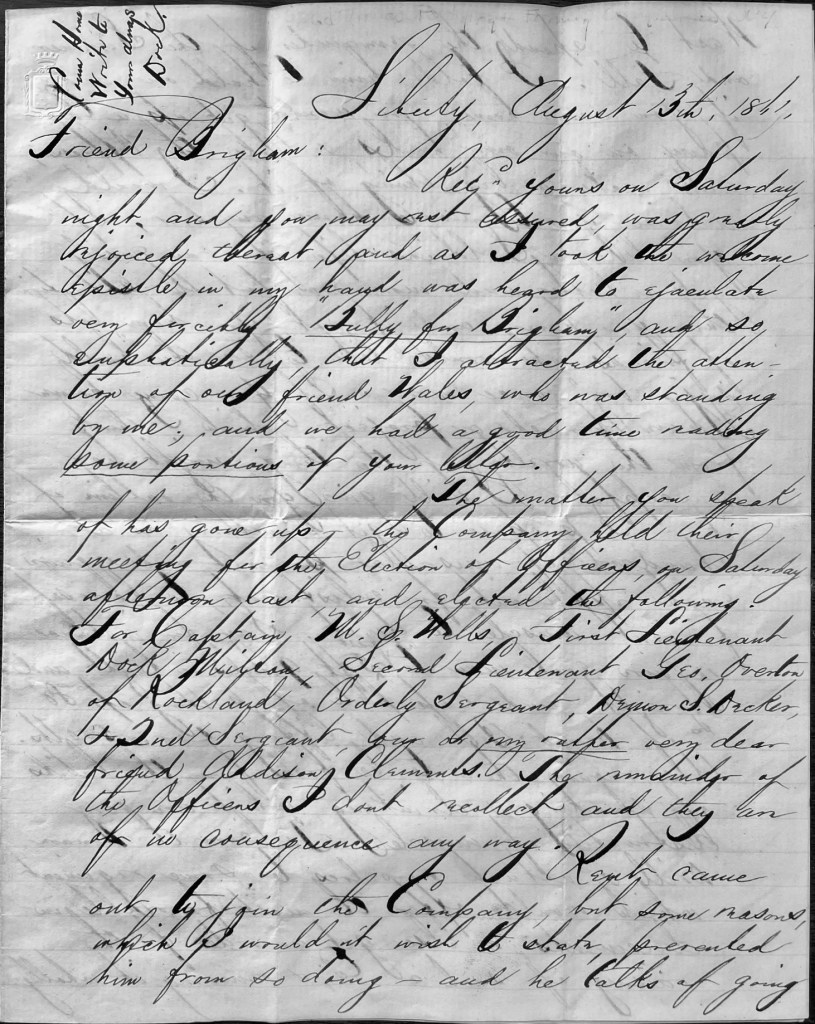 Come Home
Write to
Yours always
Dock.
Liberty, August 13th, 186
Friend Brigham:
Recd yours on Saturday
night and you may rest assured, was greatly
rejoiced thereat, and as I took the welcome
epistle in my hand was heard to ejaculate
very forcibly "Bully for Brigham", and so
emphatically, that I attracted the atten-
tion of our friend Wales, who was standing
by me; and we had a good time reading
some portions of your letter.
The matter you speak
of has gone up - the Company held their
meeting for the Election of Officers, on Saturday
afternoon last, and elected the following:
For Captain, Wells, First Lieutenant
Dock, Second Lieutenant Geo. Overton
of Rockland, Orderly Sergeant, S. Decker,
2nd Sergeant, our or my rather very dear
friend Addison Clements. The remainder of
the Officers I dont recollect and they are
of no consequence any way.
Kent came
out to join the Company, but some reasons,
which I would n't wish to state, prevented
him from so doing - and he talks of going